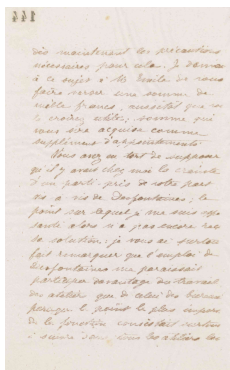 144
dès maintenant les précautions
nécessaires pour cela. Je donne
à ce sujet à Mr de
faire verser une somme de
mille francs, aussitôt que
le croirez utile, somme qui
vous sera acquise comme
supplément d'appointements.
Vous avez eu tort de supposer
qu'il y avait chez moi la crainte
d'un parti-pris de votre part
vis à vis de Desfontaines; le
point sur lequel je me suis
alors n'a pas encore reçu
sa solution: je vous ai surtout
fait remarquer que l'emploi de
Desfontaines me paraissait
participer davantage du travail
des ateliers que de celui des bureaux
puisque le point le plus
de la fonction consistait surtout
à suivre dans tous les ateliers les